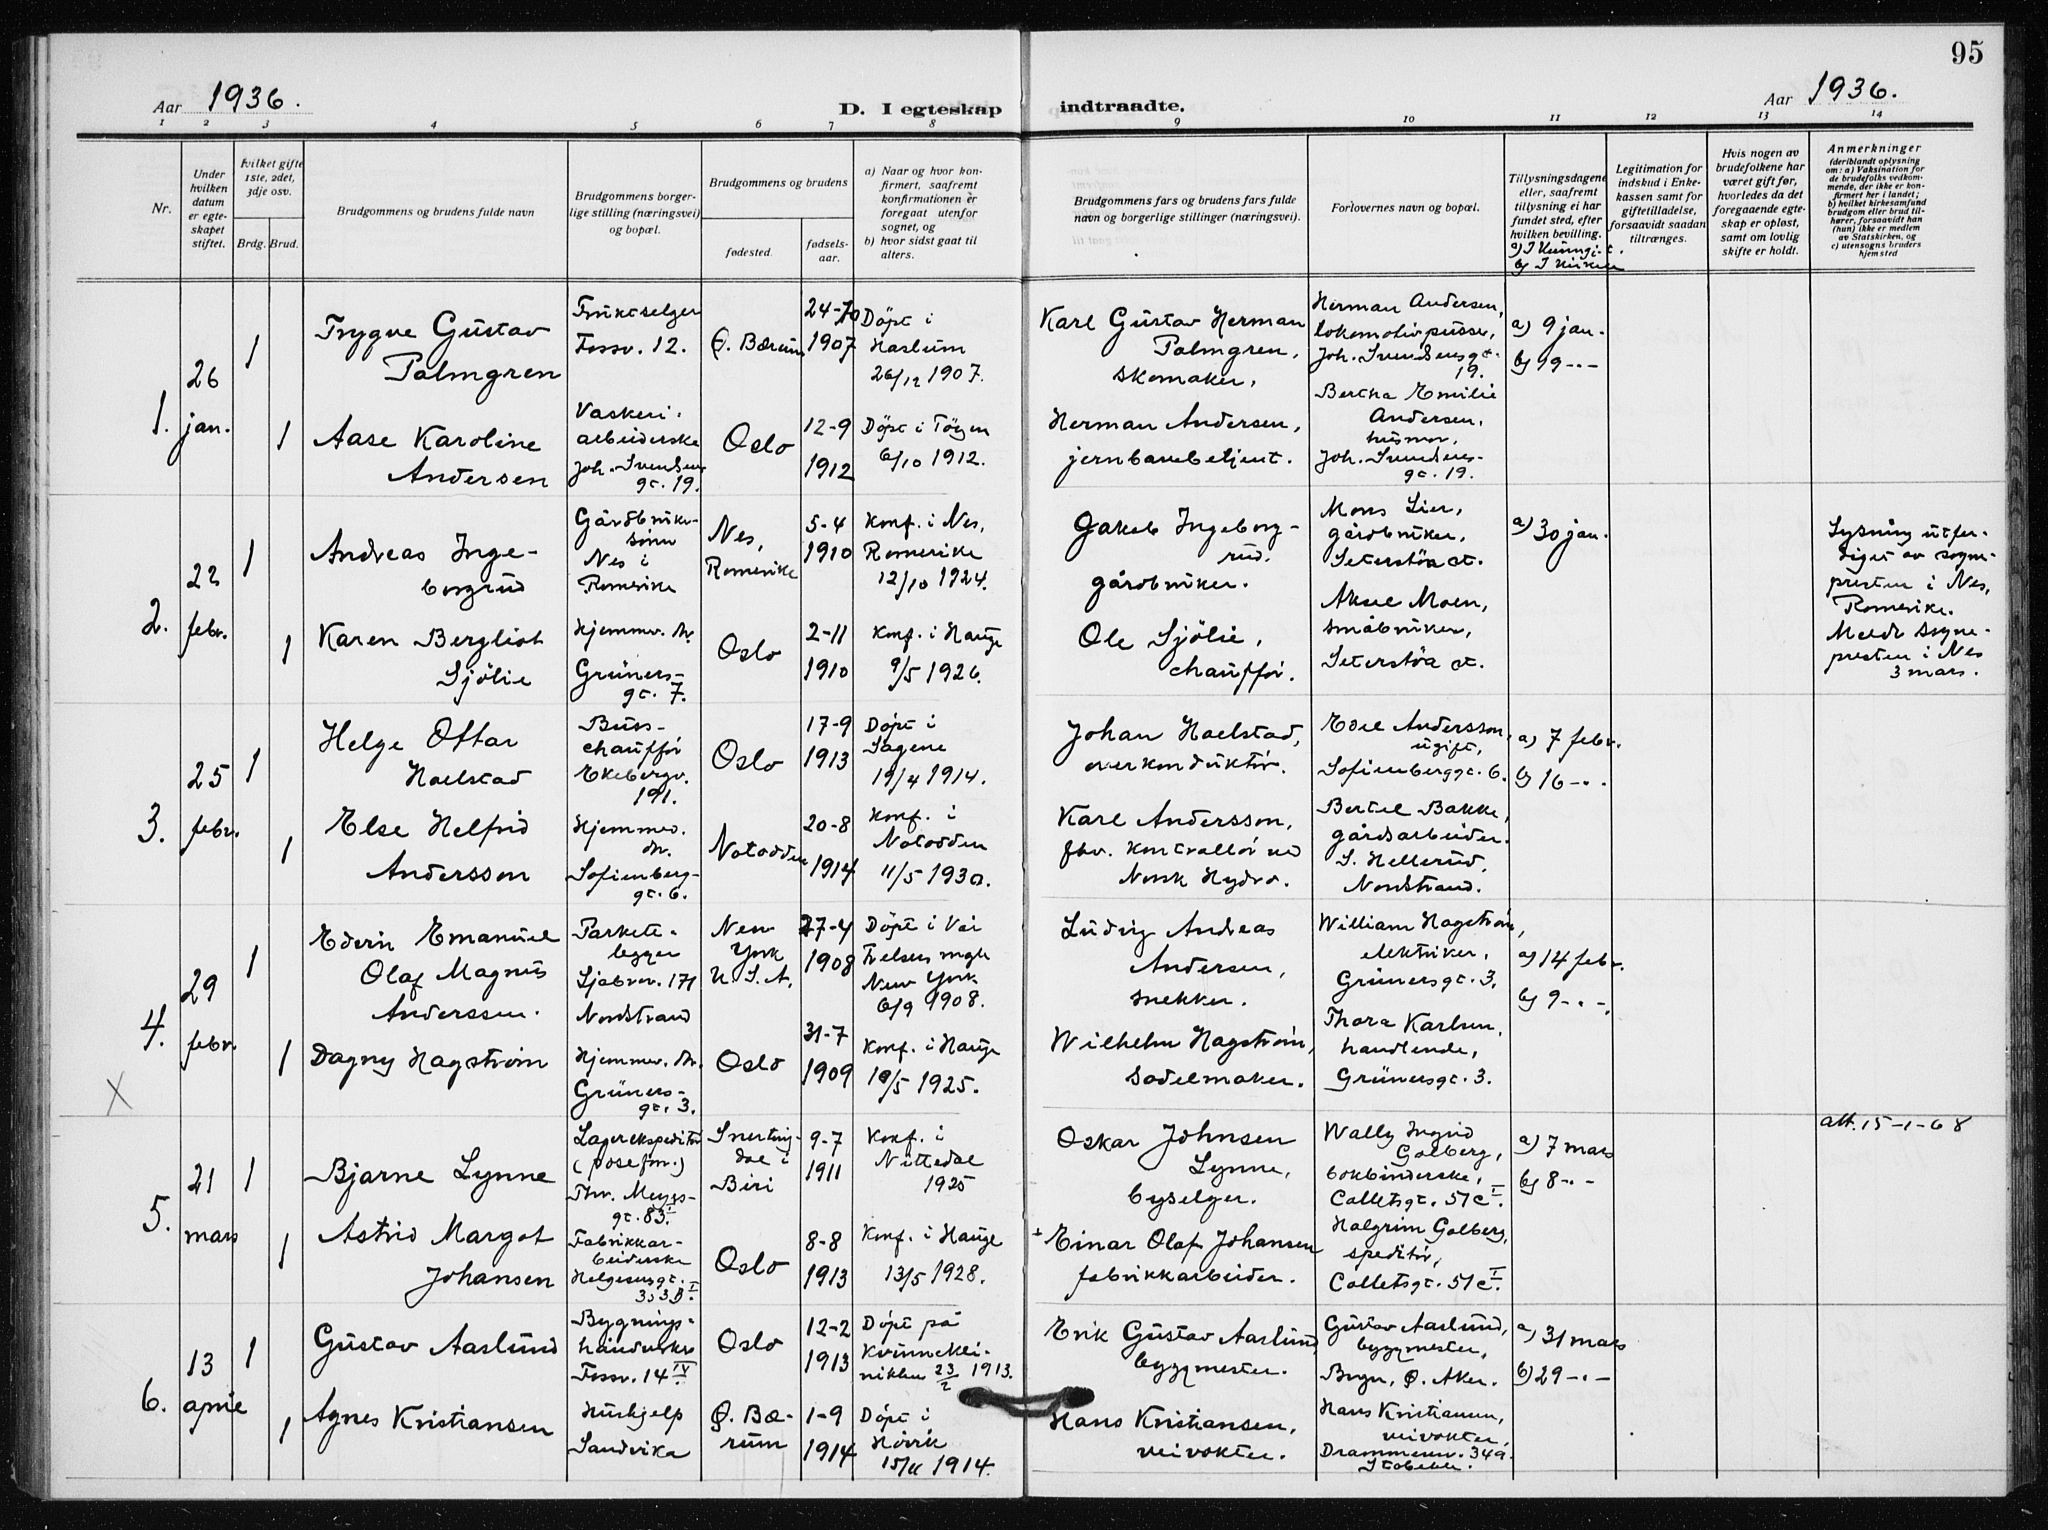 95
Aar 1936.
D. I egteskap
indtraadte.
Aar 1936.
1 2 3 4 5 6 7 8 9 10 11 12 13 14
Nr.
Under
hvilken
datum
er egte-
skapet
stiftet.
Hvilket gifte
1ste, 2det,
3dje osv.
Brdg. Brud.
Brudgommens og brudens fulde navn
Brudgommens borger-
lige stilling (næringsvei)
og bopæl.
Brudgommens og brudens
fødested.
fødsels-
aar.
a) Naar og hvor kon-
firmert, saafremt
konfirmationen er
foregaat utenfor
sognet, og
b) hvor sidst gaat til
alters.
Brudgommens fars og brudens fars fulde
navn og borgerlige stillinger (næringsvei).
Forlovernes navn og bopæl.
Tillysningsdagene
eller, saafremt
tillysning ei har
fundet sted, efter
hvilken bevilling.
b) I Kirken
Legitimation for
indskud i Enke-
kassen samt for
giftetilladelse,
forsaavidt saadan
tiltrænges.
Hvis nogen av
brudefolkene har
været gift før,
hvorledes da det
foregaaende egte-
skap er opløst,
samt om lovlig
skifte er holdt.
Anmerkninger
(deriblandt oplysning
om: a) Vaksination for
de brudefolks vedkom-
mende, der ikke er kon-
firmert her i landet;
b) hvilket kirkesamfund
brudgom eller brud til-
hører, forsaavidt han
(hun) ikke er medlem
av Statskirken, og
c) utensogns bruders
hjemsted
1.
26
jan.
1
Trygve Gustav
Palmgren
Fruktselger
Fossv. 12.
Ø. Bærum
24-10
1907
Døpt i
Haslum
26/12 1907.
Karl Gustav Herman
Palmgren,
skomaker,
Herman Andersen,
lokomotivpusser,
Joh. Svendsensgt.
19.
a) 9 jan.
b) 19 -"-
1
Aase Karoline
Andersen
Vaskeri-
arbeiderske
Joh. Svendsens
gt. 19.
Oslo
12-9
1912
Døpt i Tøyen
6/10 1912.
Herman Andersen,
jernbanebetjent.
Bertha Emilie
Andersen,
husmor,
Joh. Svendsens-
gt. 19.
2.
22
febr.
1
Andreas Inge-
borgrud
Gårdbruker-
sønn
Nes i
Romerike
Nes,
Romerike
5-4
1910
Konf. i Nes,
Romerike
12/10 1924.
Jakob Ingeborg-
rud.
gårdbruker.
Mons Lier,
gårdbruker,
Seterstøa st.
a) 30 jan.
Lysning utfer-
diget av sogne-
presten i Nes,
Romerike.
Meldt sogne-
presten i Nes
3 mars.
1
Karen Bergliot
Sjölie
Hjemmev. dr.
Grüners-
gt. 7.
Oslo
2-11
1910
Konf. i Hauge
9/5 1926.
Ole Sjölie,
chauffør.
Aksel Moen,
småbruker,
Seterstøa st.
3.
25
febr.
1
Helge Ottar
Haelstad
Buss-
chauffør
Ekebergv.
191.
Oslo
17-9
1913
Døpt i
Sagene
19/4 1914.
Johan Haelstad,
overkonduktør.
Edel Andersson,
ugift,
Sofienberggt. 6.
a) 7 febr.
b) 16 -"-
1
Else Helfrid
Andersson
Hjemmev.
dr.
Sofienberg-
gt. 6.
Notodden
20-8
1914
Konf. i
Notodden
11/5 1930.
Karl Andersson,
fhv. kontrollør ved
Norsk Hydro.
Bertel Bakke,
gårdsarbeider.
S. Hellerud,
Nordstrand.
4.
29
febr.
1
Edvin Emanuel
Olaf Magnus
Anderssen.
Parkett-
legger
Ljabrov. 171
Nordstrand
New
York
U.S.A.
27-4
1908
Døpt i Vår
Frelsers mgh
New York
6/9 1908.
Ludvig Andreas
Andersen,
snekker.
William Hagstrøm,
elektriker,
Grünersgt. 3.
a) 14 febr.
b) 9 -"-
1
Dagny Hagstrøm
Hjemmev. dr.
Grüners-
gt. 3.
Oslo
31-7
1909
Konf. i Hauge
10/5 1925.
Wilhelm Hagstrøm,
sadelmaker.
Thora Karlsen,
handlende,
Grünersgt. 3.
X
5.
21
mars
1
Bjarne Lynne
Lagerekspeditør
(posefm.)
Thv. Meyers-
gt. 83 I.
Snerting-
dal i
Biri
9-7
1911
Konf. i
Nittedal
1925
Oskar Johnsen
Lynne,
byselger.
Wally Ingrid
Golberg,
bokbinderske,
Colletsgt. 51 c I.
a) 7 mars
b) 8 -"-
att. 15-1-68
1
Astrid Margot
Johansen
Fabrikkar-
beiderske
Helgesensgt.
Oslo
8-8
1913
Konf. i Hauge
13/5 1928.
+ Einar Olaf Johansen
fabrikkarbeider.
Halgrim Golberg,
speditør,
Colletsgt. 51 c I.
6.
13
april
1
Gustav Aaslund
Bygnings-
håndverker
Fossv. 14 IV.
Oslo
12-2
1913
Døpt på
Kvinnekli-
nikken 23/2 1913.
Erik Gustav Aaslund
byggmester.
Gustav Aaslund,
byggmester,
Bryn, Ø. Aker.
a) 31 mars
b) 29 -"-
1
Agnes Kristiansen
Hushjelp
Sandvika
Ø. Bæ-
rum
1-9
1914
Døpt i
Høvik
15/11 1914.
Hans Kristiansen,
veivokter.
Hans Kristiansen,
veivokter,
Drammensv. 349.
Stabekk.